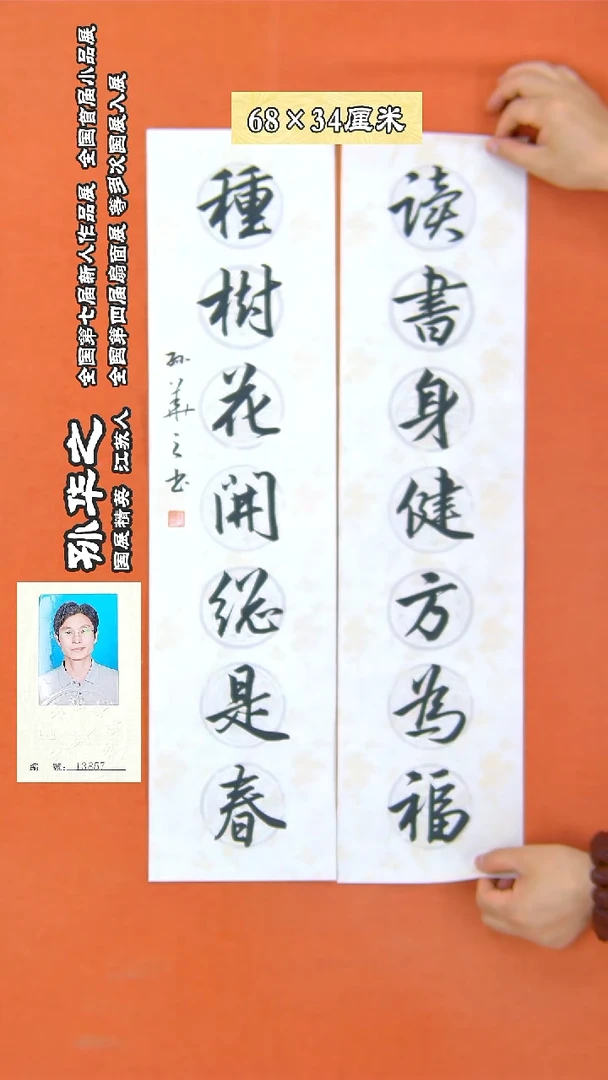 68×34厘米
读書身健方為福
種樹花開総是春
孙華之书
全国第七届新人作品展 全国首届小品展
全国第四届扇面展 等多次国展入展
孙华之
国展精英 江苏人
编 號: 13857